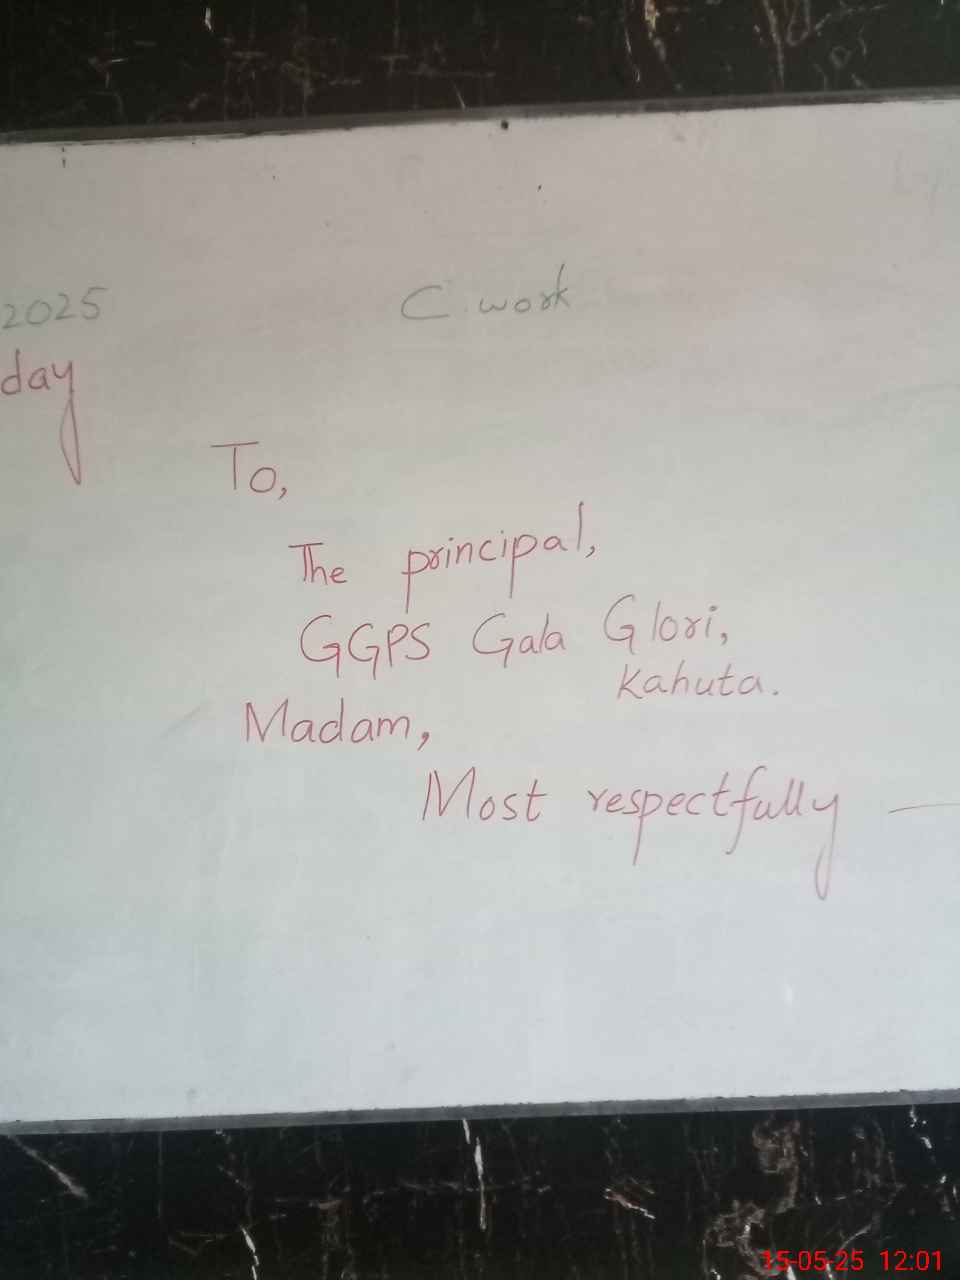 2025
C.work
day
To,
The principal,
GGPS Gala Glori,
Kahuta.
Madam,
Most respectfully —
15-05-25 12:01